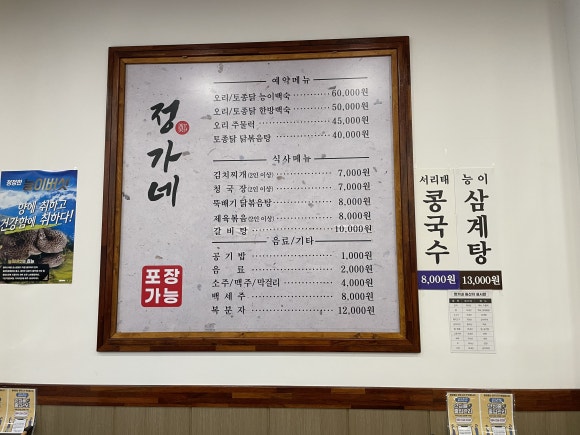 정가네
포장
가능
예약메뉴
오리/토종닭 능이백숙 60,000원
오리/토종닭 한방백숙 50,000원
오리 주물럭 45,000원
토종닭 닭볶음탕 40,000원
식사메뉴
김치찌개(2인 이상) 7,000원
청국장(2인 이상) 7,000원
뚝배기 닭볶음탕 8,000원
제육볶음(2인 이상) 8,000원
갈비탕 10,000원
음료/기타
공기밥 1,000원
음료 2,000원
소주/맥주/막걸리 4,000원
백세주 8,000원
복분자 12,000원
향에 취하고
건강함에 취하다!
서리태
콩국수
8,000원
능이
삼계탕
13,000원